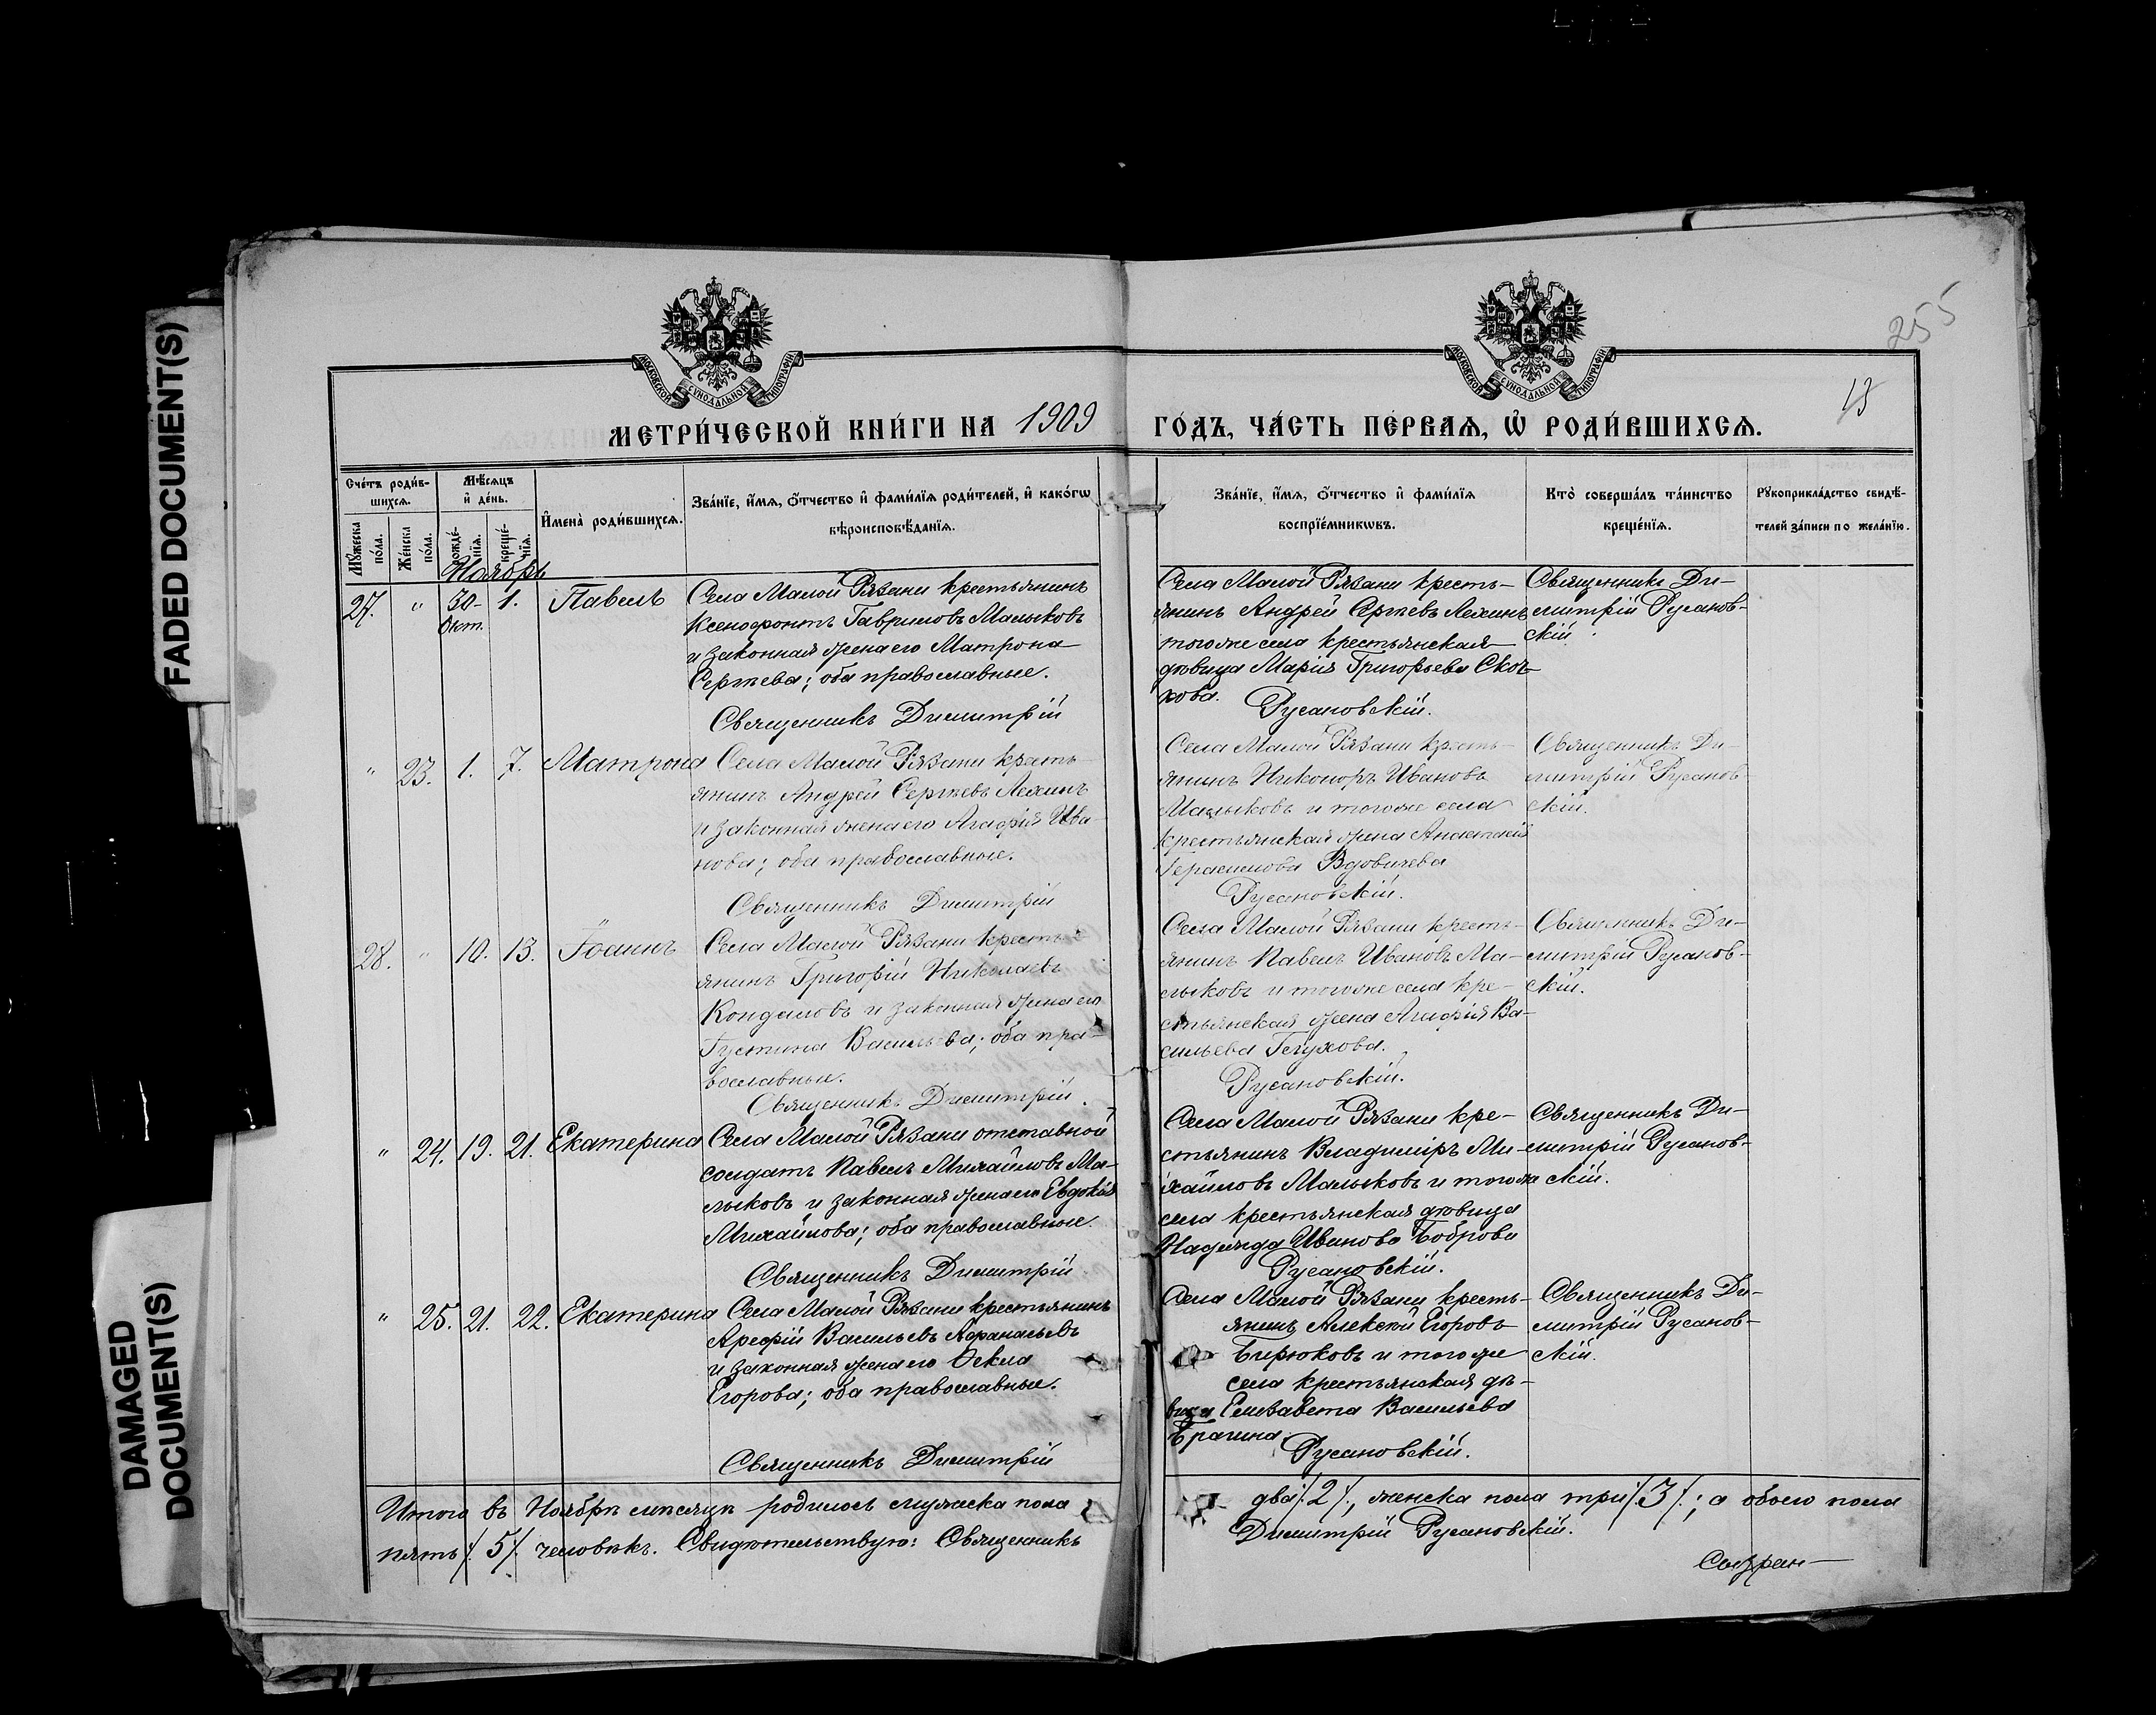 FADED DOCUMENT(S)
DAMAGED
DOCUMENT(S)
255
13
МОСКОВСКОЙ СѴНОДАЛЬНОЙ ТИПОГРАФІИ
МОСКОВСКОЙ СѴНОДАЛЬНОЙ ТИПОГРАФІИ
МЕТРИ́ЧЕСКОЙ КНИ́ГИ НА 1909 ГО́ДЪ, ЧА́СТЬ ПЕ́РВАѦ, Ѽ РОДИ́ВШИХСѦ.
Сче́тъ роди́в-
шихсѧ.
Мꙋ́жеска по́ла.
Же́нска по́ла.
Мѣ́сѧцъ
и҆ де́нь.
рожде́-
нїѧ.
креще́-
нїѧ.
И҆мена̀ роди́вшихсѧ.
Зва́нїе, и҆́мѧ, ѻ҆́тчество и҆ фами́лїѧ роди́телей, и҆ како́гѡ
вѣроисповѣ́данїѧ.
Зва́нїе, и҆́мѧ, ѻ҆́тчество и҆ фами́лїѧ
воспрїе́мникѡвъ.
Кто̀ соверша́лъ та́инство
креще́нїѧ.
Рꙋкоприкла́дство свидѣ́-
телей за́писи по жела́нїю.
Ноябрь
27. " 30- 1. Павелъ
Окт.
Села Малой Рязани крестьянинъ
Ксенофонтъ Гавриловъ Малыковъ
и законная жена его Матрона
Сергѣева; оба православные.
Священникъ Димитрій
Села Малой Рязани кресть-
янинъ Андрей Сергѣевъ Лекинъ
тогоже села крестьянская
дѣвица Марія Григорьева Скоч-
кова.
Русановскій.
Священникъ Ди-
митрій Русанов-
скій.
" 23. 1. 7. Матрона
Села Малой Рязани кресть-
янинъ Андрей Сергѣевъ Лекинъ
и законная жена его Агафія Ива-
нова; оба православные.
Священникъ Димитрій
Села Малой Рязани кресть-
янинъ Никоноръ Ивановъ
Малыковъ и тогоже села
крестьянская жена Анастасія
Герасимова Вдовичева
Русановскій.
Священникъ Ди-
митрій Русанов-
скій.
28. " 10. 13. Іоаннъ
Села Малой Рязани кресть-
янинъ Григорій Николаевъ
Кондаловъ и законная жена его
Густина Васильева; оба пра-
вославные.
Священникъ Димитрій.
Села Малой Рязани кресть-
янинъ Павелъ Ивановъ Ма-
лыковъ и тогоже села кре-
стьянская жена Агафія Ва-
сильева Глухова.
Русановскій.
Священникъ Ди-
митрій Русанов-
скій.
" 24. 19. 21. Екатерина
Села Малой Рязани отставной
солдатъ Павелъ Михайловъ Ма-
лыковъ и законная жена его Евдокія
Михайлова; оба православные.
Священникъ Димитрій
Села Малой Рязани кре-
стьянинъ Владиміръ Ми-
хайловъ Малыковъ и тогоже
села крестьянская дѣвица
Надежда Иванова Боброва
Русановскій.
Священникъ Ди-
митрій Русанов-
скій.
" 25. 21. 22. Екатерина
Села Малой Рязани крестьянинъ
Арефій Васильевъ Афанасьевъ
и законная жена его Ѳекла
Егорова; оба православные.
Священникъ Димитрій
Села Малой Рязани кресть-
янинъ Алексѣй Егоровъ
Бирюковъ и тогоже
села крестьянская дѣ-
вица Елизавета Васильева
Ерагина
Русановскій.
Священникъ Ди-
митрій Русанов-
скій.
Итого въ Ноябрѣ мѣсяцѣ родилось мужеска пола два /:2:/, женска пола три /:3:/; а обоего пола
пять /:5:/ человѣкъ. Свидѣтельствую: Священникъ Димитрій Русановскій.
Сызран-